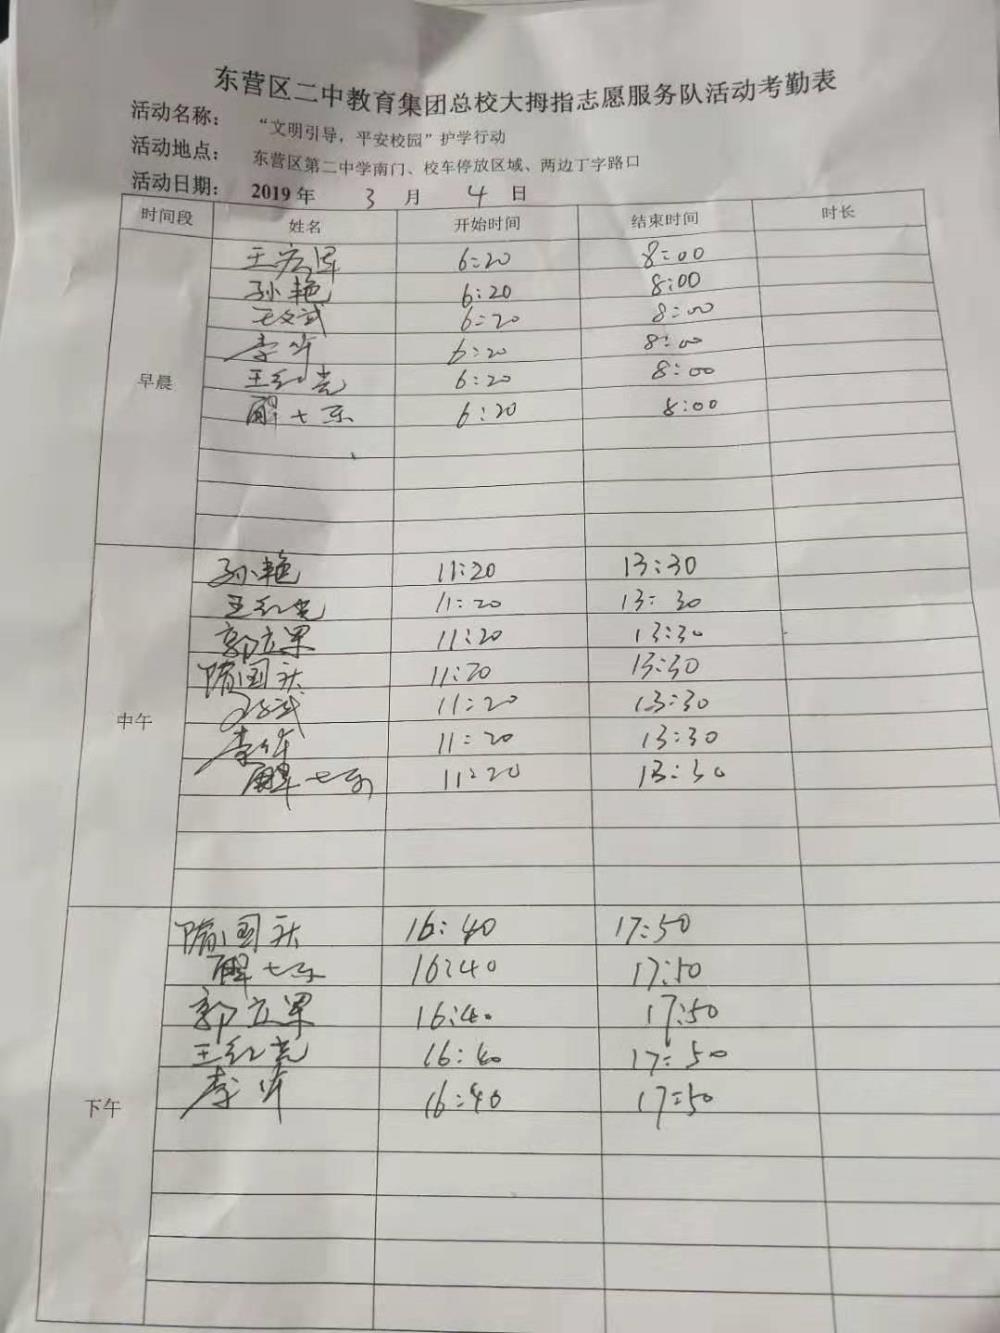 东营区二中教育集团总校大拇指志愿服务队活动考勤表
活动名称： “文明引导，平安校园”护学行动
活动地点： 东营区第二中学南门、校车停放区域、两边丁字路口
活动日期： 2019 年 3 月 4 日
时间段 姓名 开始时间 结束时间 时长
早晨
王宏军 6:20 8:00
孙艳 6:20 8:00
王文武 6:20 8:00
李华 6:20 8:00
王红光 6:20 8:00
解七东 6:20 8:00
中午
孙艳 11:20 13:30
王红光 11:20 13:30
郭立军 11:20 13:30
隋国庆 11:20 13:30
11:20 13:30
李华 11:20 13:30
解七东 11:20 13:30
下午
隋国庆 16:40 17:50
解七东 16:40 17:50
郭立军 16:40 17:50
王红光 16:40 17:50
李华 16:40 17:50